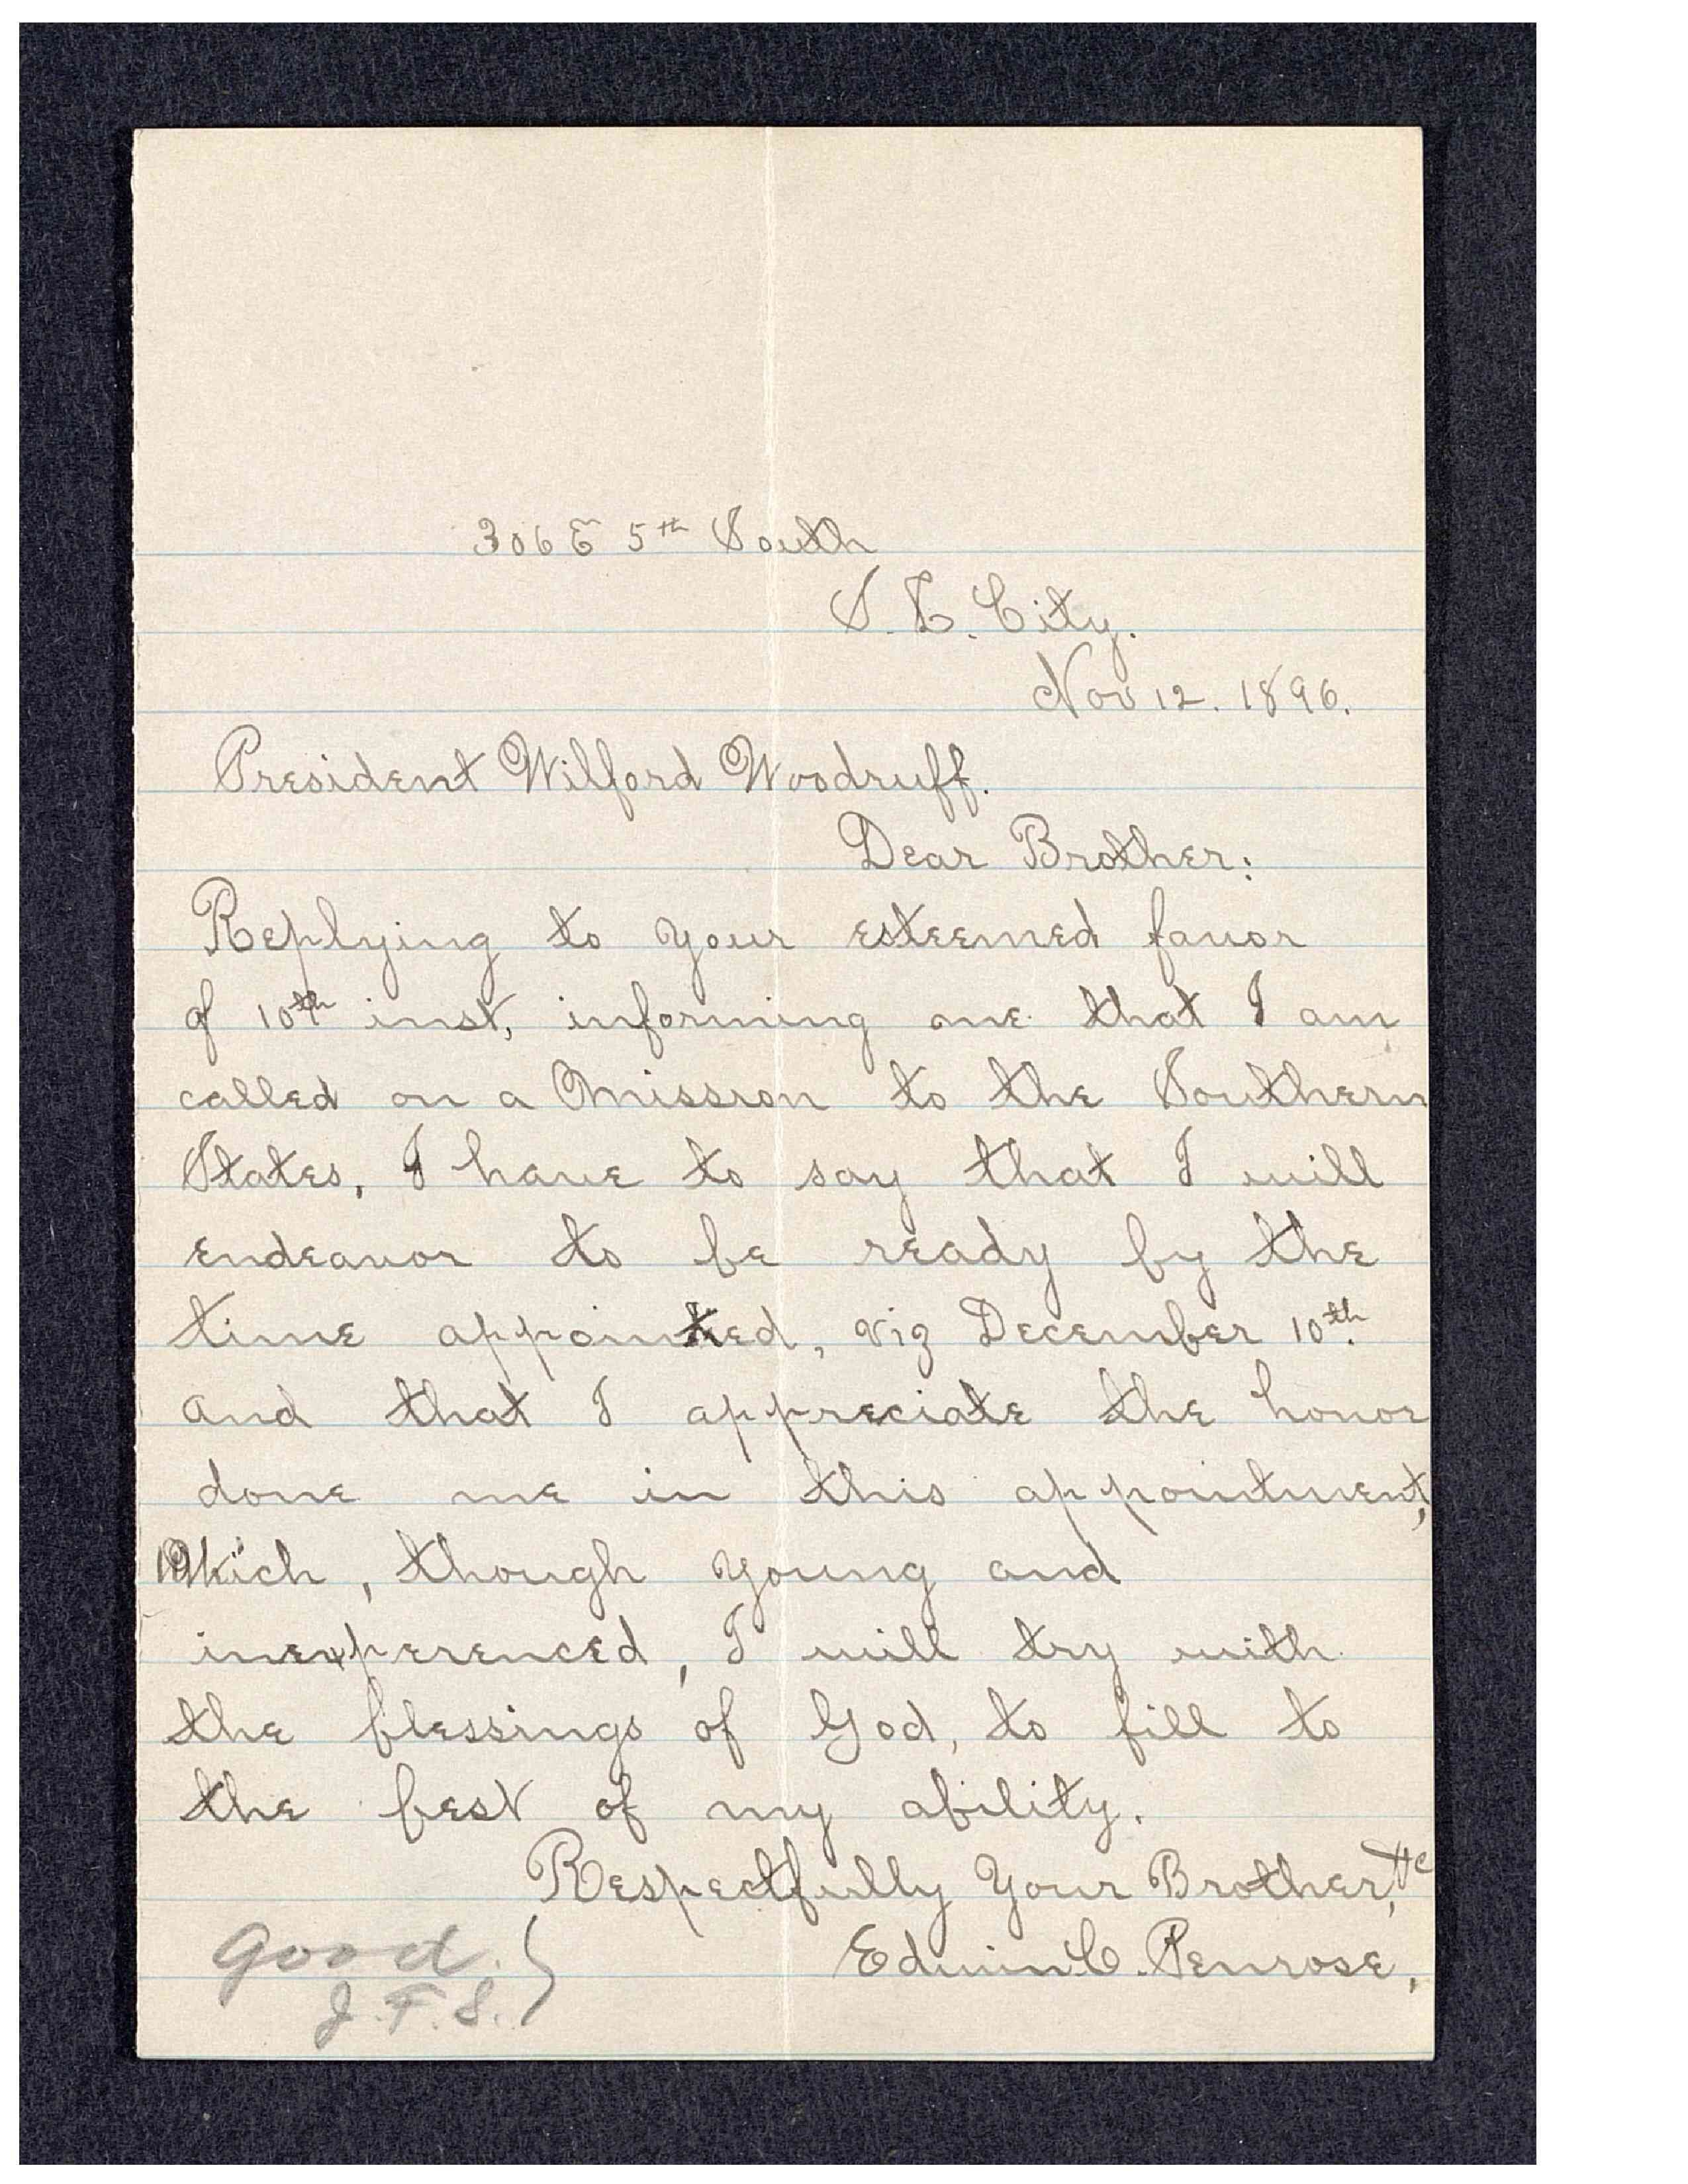 306 E 5th South
S. L. City.
Nov 12. 1896.
President Wilford Woodruff.
Dear Brother:
Replying to your esteemed favor
of 10th inst, informing me that I am
called on a Mission to the Southern
States, I have to say that I will
endeavor to be ready by the
time appointed, viz December 10th.
and that I appreciate the honor
done me in this appointment,
Which, though young and
inexperenced, I will try with
the blessings of God, to fill to
the best of my ability.
Respectfully Your Brother, &c
Edwin C. Penrose,
Good.
J. F. S.